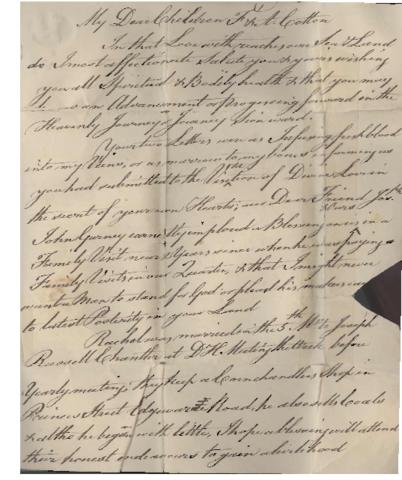 My Dear Children F & A Cotton
In that Love which reaches over Sea & Land
do I most affectionate Salute you & yours wishing
you all Spiritual & Bodily health & that you may
an Advancement a Progressing forward in the
Heavenly Journey a Journey Zion ward.
Your two Letters were as Infusing fresh blood
into my Veins, or as marrow to my bones informing us
you had submitted to the of Devine Love in
the secret of your own Hearts, our Dear Friend Jos.ph
John Gurney earnestly implored a Blessing on us in a
Family Visit near 2 Years since when he was paying a
Family Visits in our Quarter, & that I might never
want a Man to stand for God or plead his
to latest Posterity in your Land
Rachel was married in the 5th Mo to Joseph
Russell Chantler at D.H. Meeting the Week before
Yearly meeting, they keep a Cornchandlers Shop in
Princes Street Edgware Road, he also sells Coals
& altho he began with little, I hope a blessing will attend
their honest endeavours to gain a livelihood